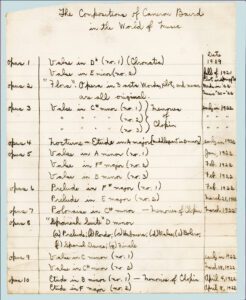 The Compositions of Cameron Baird
in the World of Music
Date
opus 1 Valse in Db (no. 1) (Chromatic) 1921
Valse in E minor (no. 2) fall of 1921
opus 2 "Flora" Opera in 3 acts Words, plot, and music
are all original.
opus 3 Valse in C# minor (no. 1) Memories
" " " (no. 2) of
" " " (no. 3) Chopin
opus 4 Nocturne - Etude in A major early in 1922
opus 5 Valse in A minor (no. 1) Jan. 1922
Valse in F# major (no. 2) Feb. 1922
Valse in E minor (no. 3) Feb. 1922
opus 6 Prelude in F# major (no. 1) Feb. 1922
Prelude in E major (no. 2) March 1922
opus 7 Polonaise in C# minor - Memories of Chopin March, 1922
opus 8 "Spanish Suite" D minor
(a) Prelude (b) Rondo (c) (d) (e) Bolero
(f) Spanish Dance (g) Finale
opus 9 Valse in E minor (no. 1) 1922
Valse in C# minor (no. 2) 1922
opus 10 Etude in B minor (no. 1) - Memories of Chopin April 9, 1922
Etude in F major (no. 2) April 1922